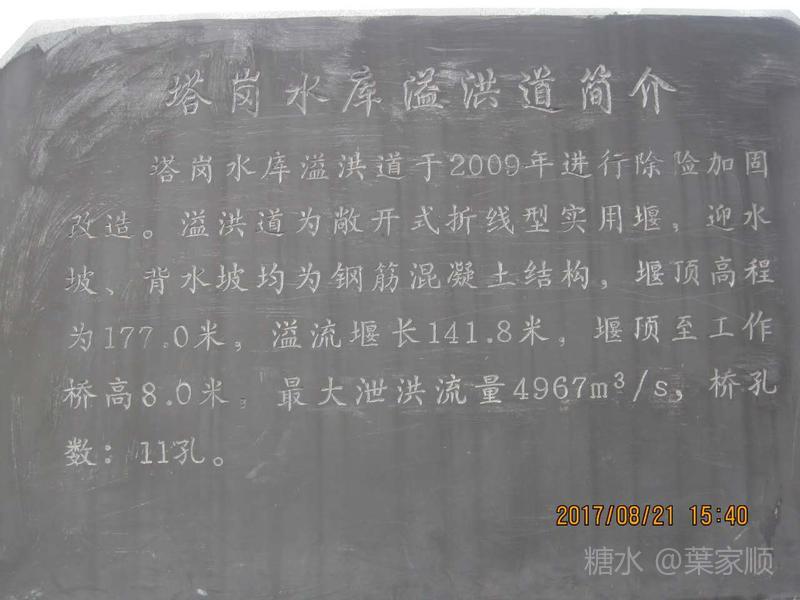 塔岗水库溢洪道简介
塔岗水库溢洪道于2009年进行除险加固
改造。溢洪道为敞开式折线型实用堰，迎水
坡、背水坡均为钢筋混凝土结构，堰顶高程
为177.0米，溢流堰长141.8米，堰顶至工作
桥高8.0米，最大泄洪流量4967m³/s，桥孔
数：11孔。
2017/08/21 15:40
糖水 @葉家顺